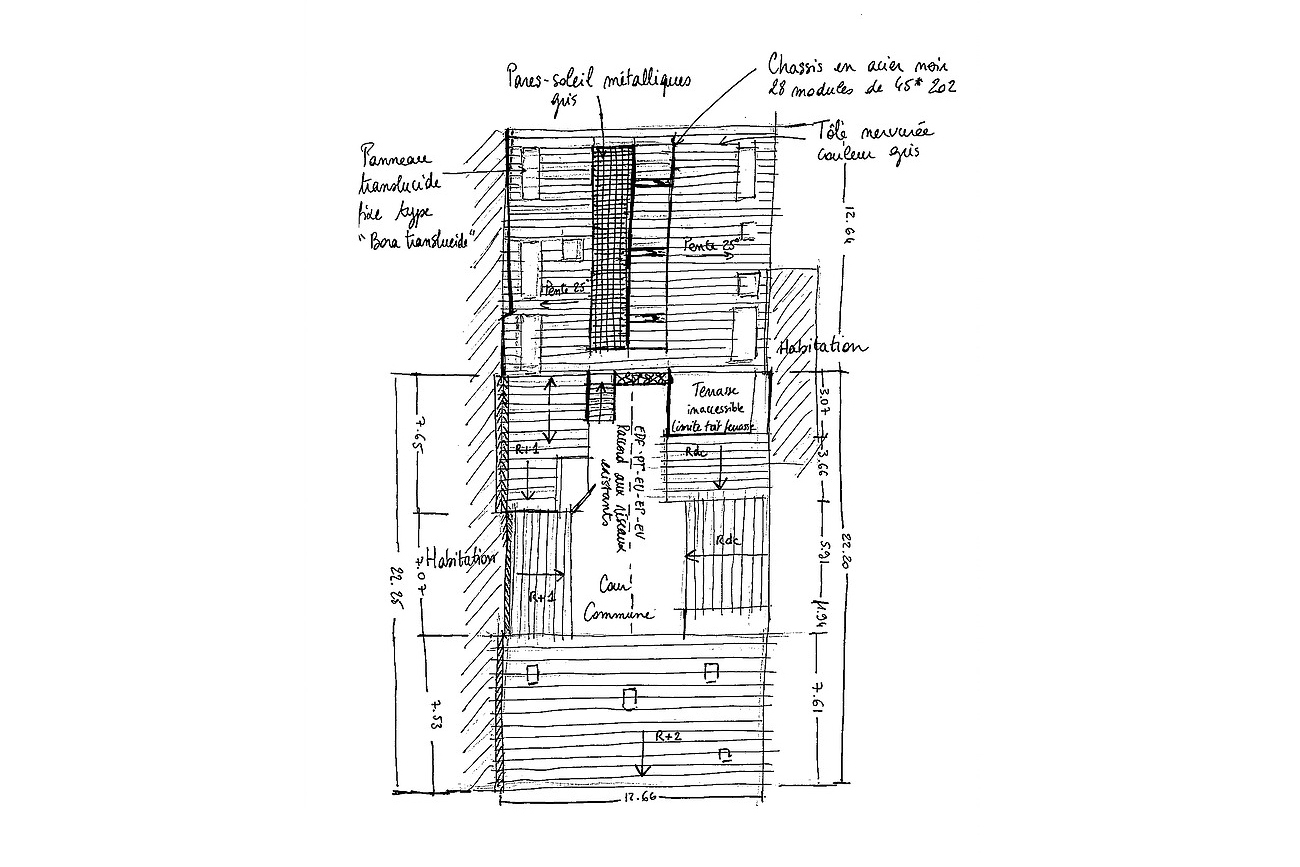 Pares-soleil métalliques
gris
Chassis en acier noir
28 modules de 45* 202
Tôle nervurée
couleur gris
Panneau
translucide
fixe type
"Bora translucide"
12.64
Pente 25°
Pente 25°
Habitation
Terrasse
inaccessible
Limite toit terrasse
3.07
7.65
R+1
EDF-PT-EU-EP-EV
Raccord aux réseaux
existants
Rdc
3.66
Rdc
5.91
22.20
Habitation
7.07
22.25
R+1
Cour
Commune
1.94
7.53
7.61
R+2
12.66